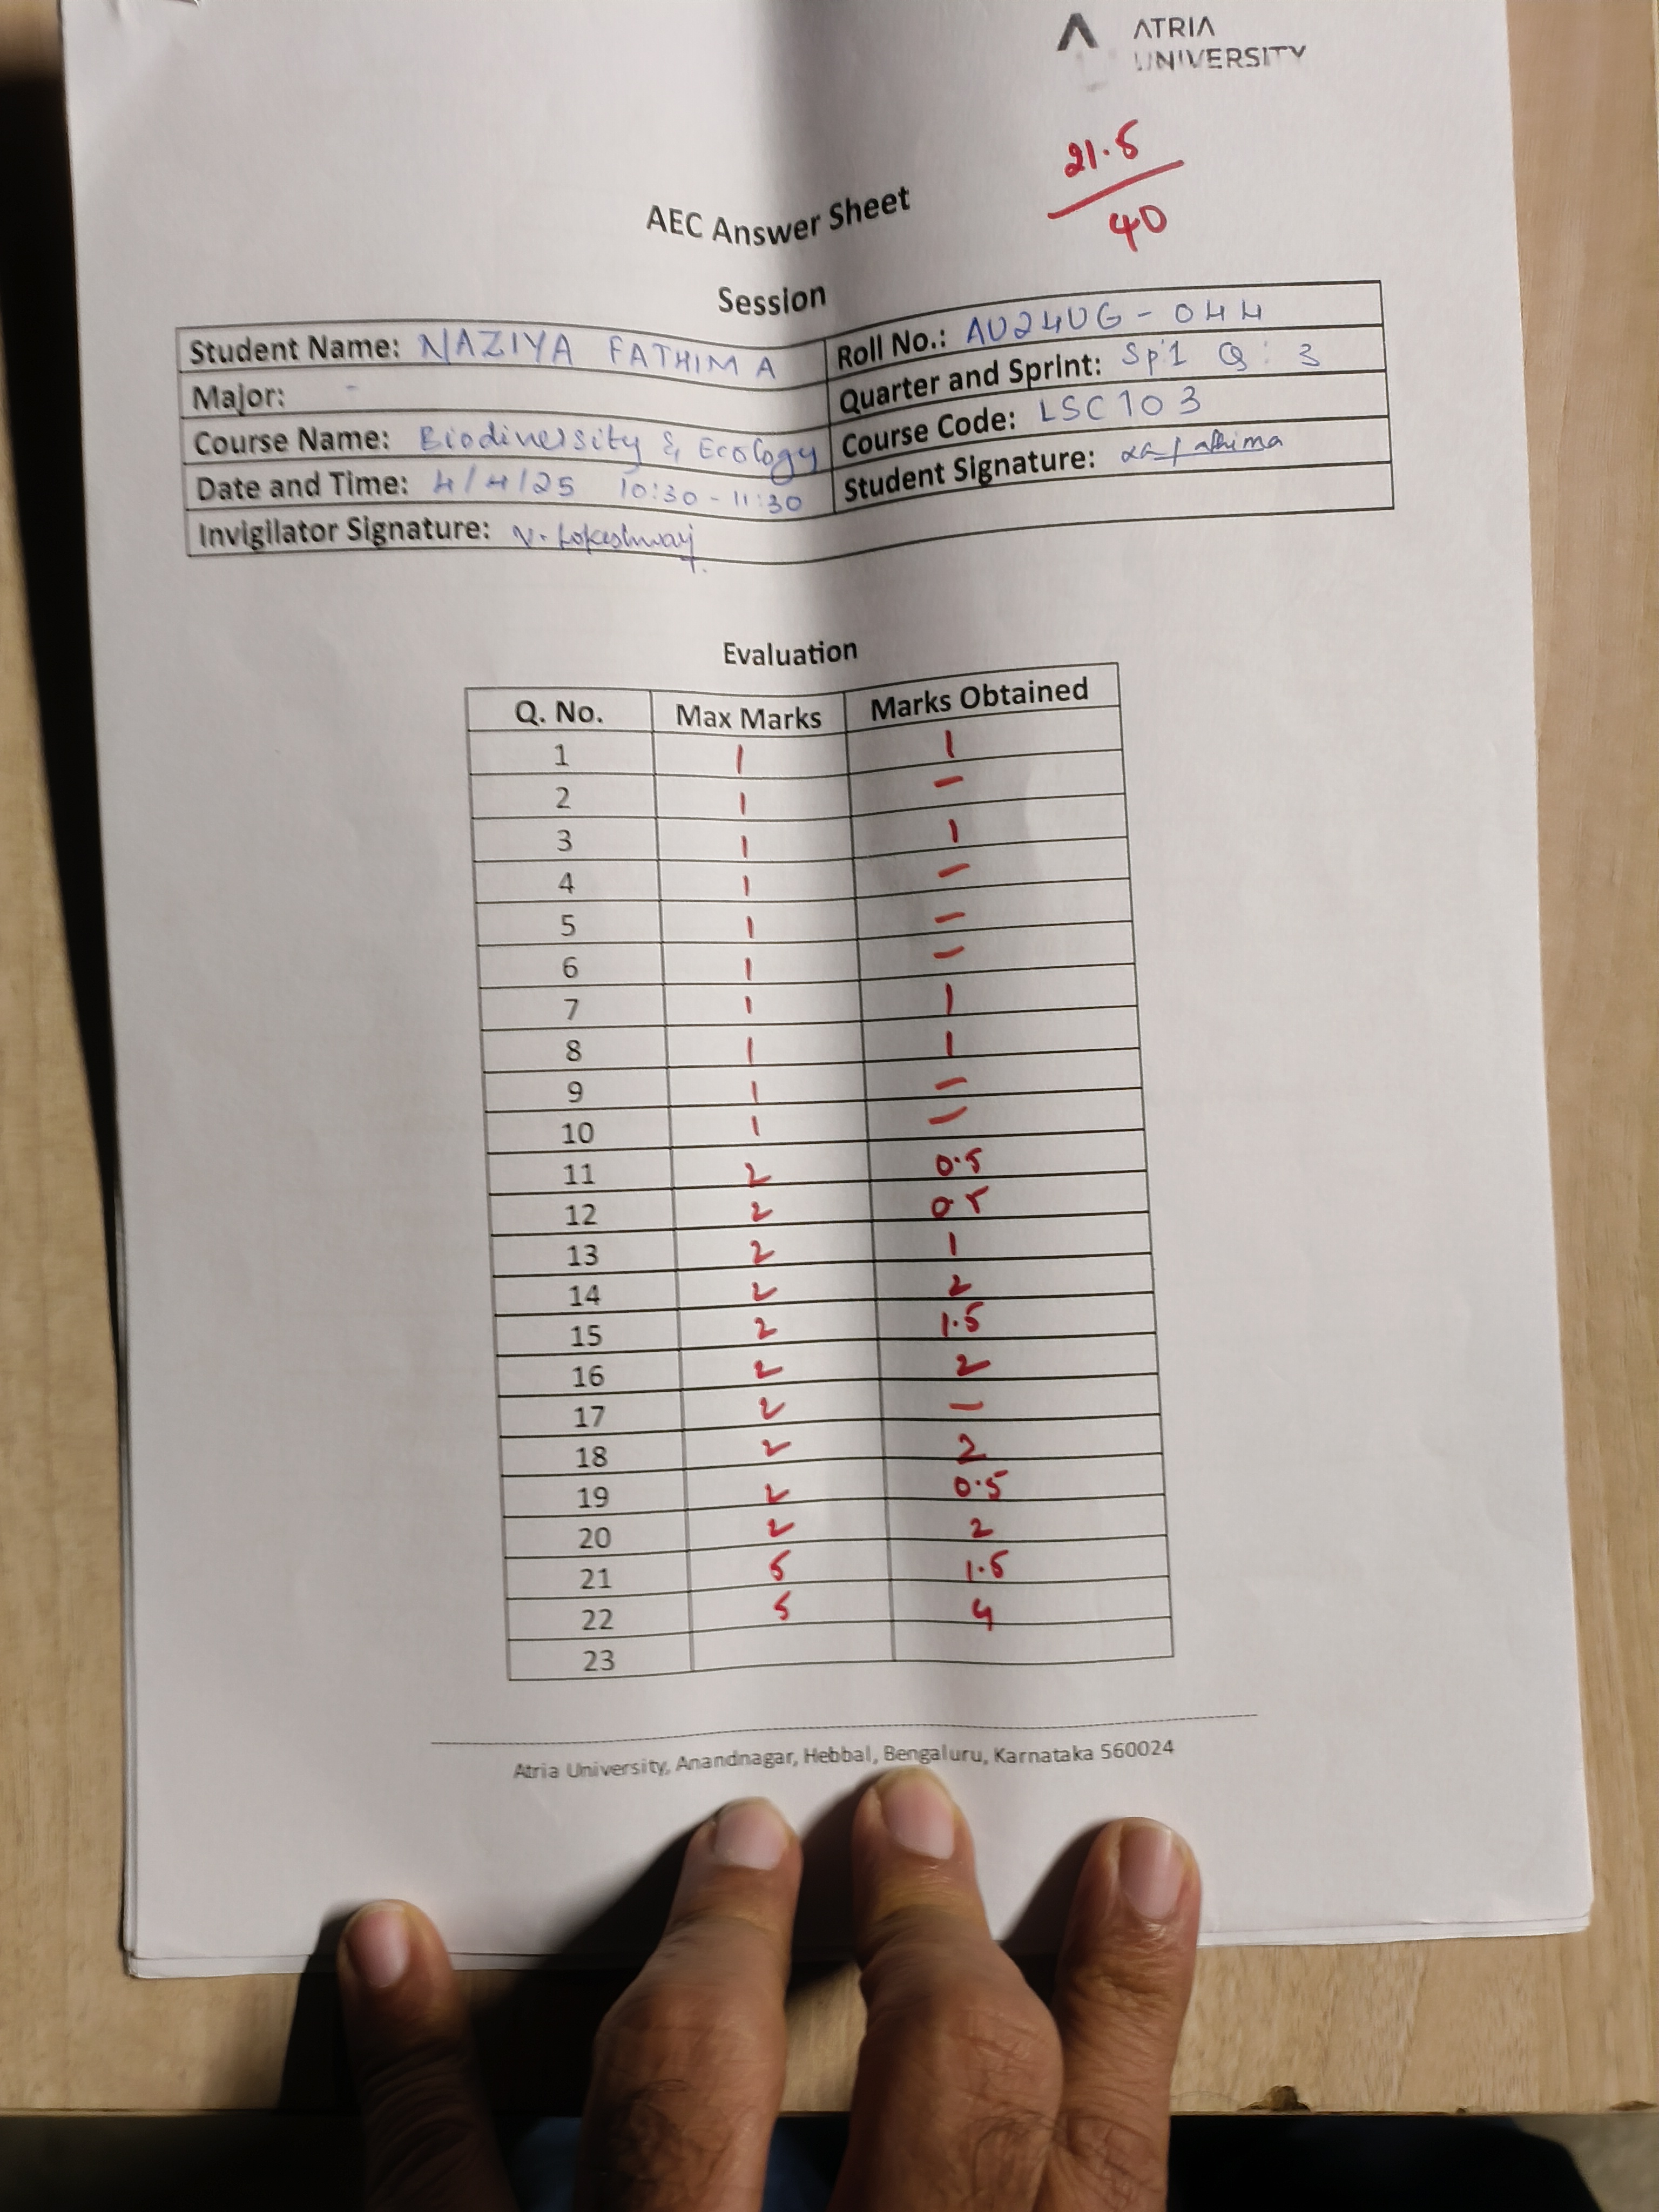 ATRIA
UNIVERSITY
21.5
40
AEC Answer Sheet
Session
Student Name: NAZIYA FATHIMA
Roll No.: AU24UG - 044
Major: -
Quarter and Sprint: Sp:1 Q: 3
Course Name: Biodiversity & Ecology
Course Code: LSC103
Date and Time: 4/4/25 10:30 - 11:30
Student Signature:
Invigilator Signature:
Evaluation
Q. No. Max Marks Marks Obtained
1 1 1
2 1 -
3 1 1
4 1 -
5 1 -
6 1 -
7 1 1
8 1 1
9 1 -
10 1 -
11 2 0.5
12 2 0.5
13 2 1
14 2 2
15 2 1.5
16 2 2
17 2 -
18 2 2
19 2 0.5
20 2 2
21 5 1.5
22 5 4
23
Atria University, Anandnagar, Hebbal, Bengaluru, Karnataka 560024